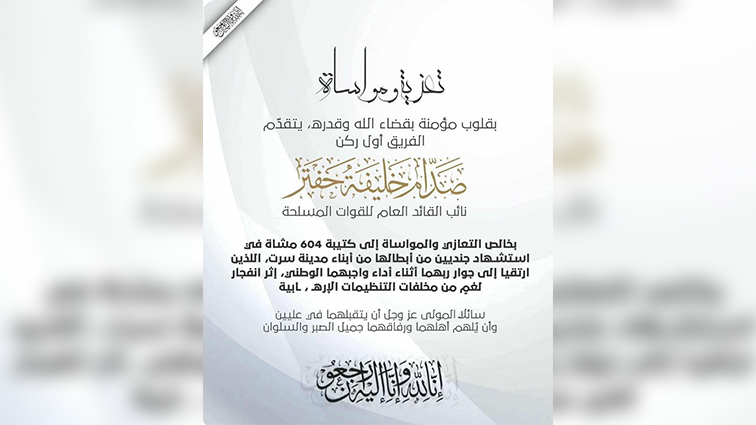 تعزية ومواساة
بقلوب مؤمنة بقضاء الله وقدره، يتقدّم
الفريق أول ركن
صدّام خليفة حفتر
نائب القائد العام للقوات المسلحة
بخالص التعازي والمواساة إلى كتيبة 604 مشاة في
استشهاد جنديين من أبطالها من أبناء مدينة سرت، اللذين
ارتقيا إلى جوار ربهما أثناء أداء واجبهما الوطني، إثر انفجار
لغمٍ من مخلفات التنظيمات الإرهـ ، ـابية
سائلًا المولى عز وجل أن يتقبلهما في عليين
وأن يُلهم أهلهما ورفاقهما جميل الصبر والسلوان
إنا لله وإنا إليه راجعون